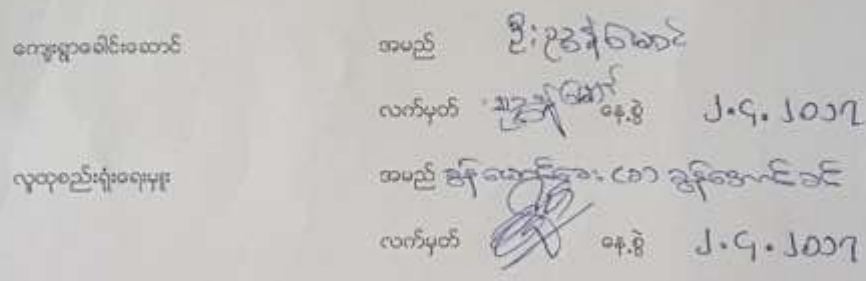 ကျေးရွာခေါင်းဆောင် အမည် ဦး
လက်မှတ် နေ့စွဲ ၂.၄.၂၀၁၇
လူထုစည်းရုံးရေးမှူး အမည် ခွန် (ခ) ခွန်အောင်ခင်
လက်မှတ် နေ့စွဲ ၂.၄.၂၀၁၇